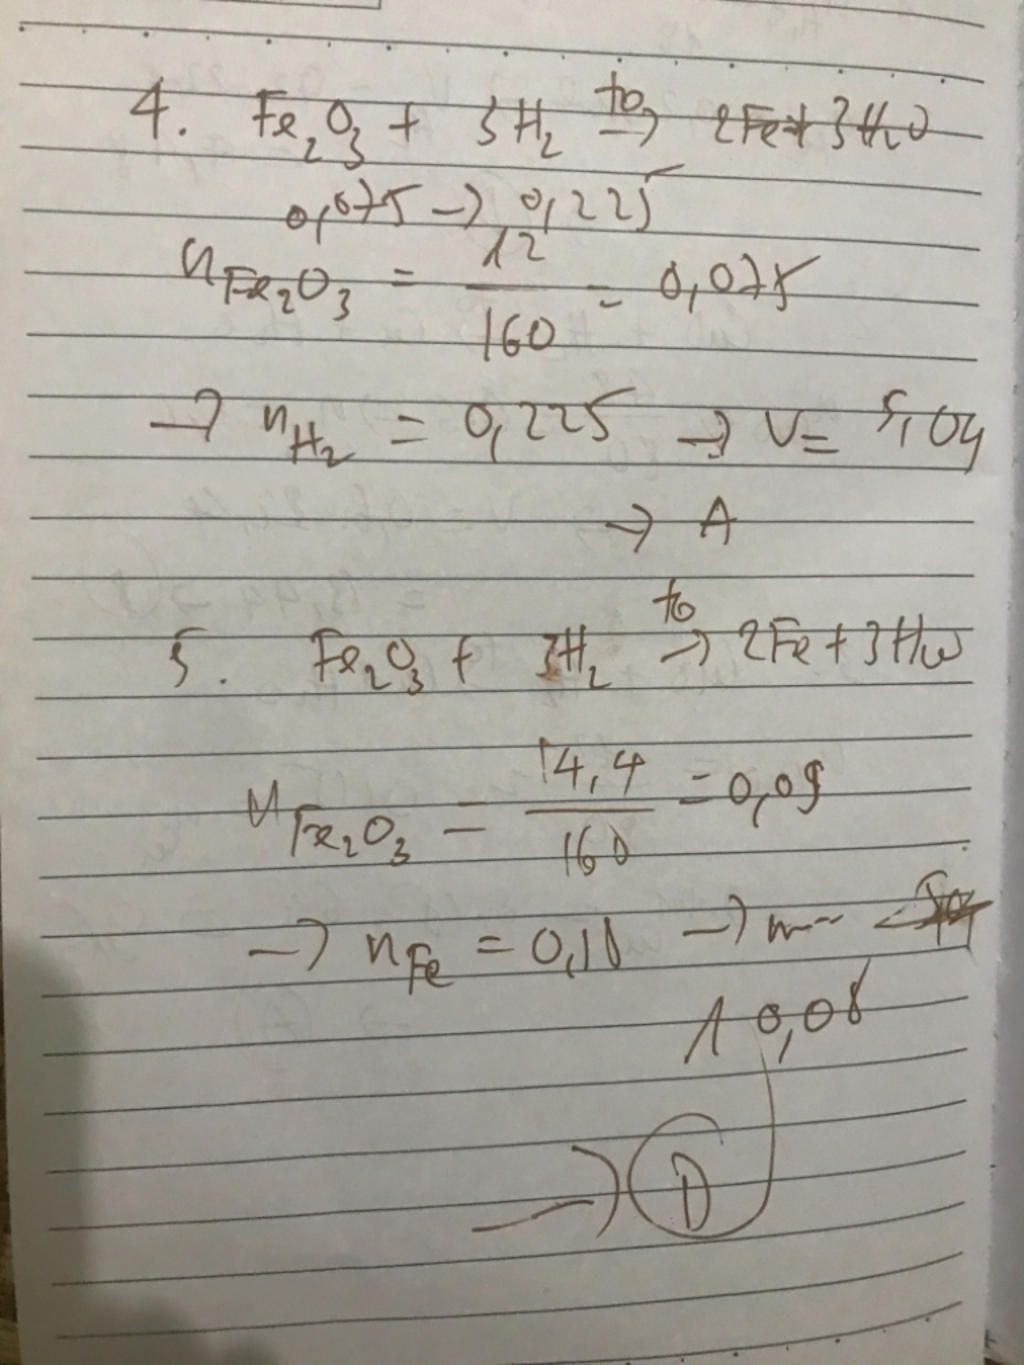 4. Fe₂O₃ + 3H₂ →(to) 2Fe + 3H₂O
0,075 → 0,225
nFe₂O₃ = 12/160 = 0,075
→ nH₂ = 0,225 → V = 5,04
→ A
5. Fe₂O₃ + 3H₂ →(to) 2Fe + 3H₂O
nFe₂O₃ = 14,4/160 = 0,09
→ nFe = 0,18 → m =
10,08
→ D